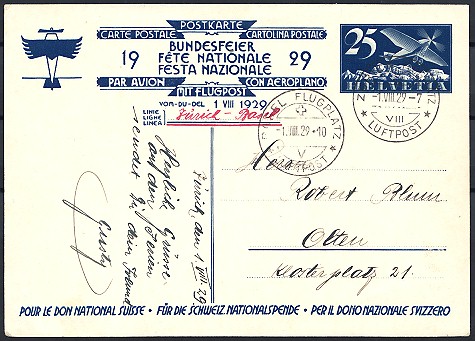 POSTKARTE
CARTE POSTALE CARTOLINA POSTALE
19 BUNDESFEIER 29
FÊTE NATIONALE
FESTA NAZIONALE
PAR AVION CON AEROPLANO
MIT FLUGPOST
VOM·DU·DEL 1 VIII 1929
LINIE
LIGNE
LINEA
Zürich - Basel
25
HELVETIA
BASEL FLUGPLATZ
-1.VIII.29.-10
V
LUFTPOST
-1.VIII.29.-7
VIII
LUFTPOST
Herrn
Robert Blum
Olten
Klosterplatz 21.
Zürich, den 1. VIII. 29
Herzliche Grüsse
aus den Ferien
sendet Dir dein Freund
Gusty
POUR LE DON NATIONAL SUISSE · FÜR DIE SCHWEIZ NATIONALSPENDE · PER IL DONO NAZIONALE SVIZZERO